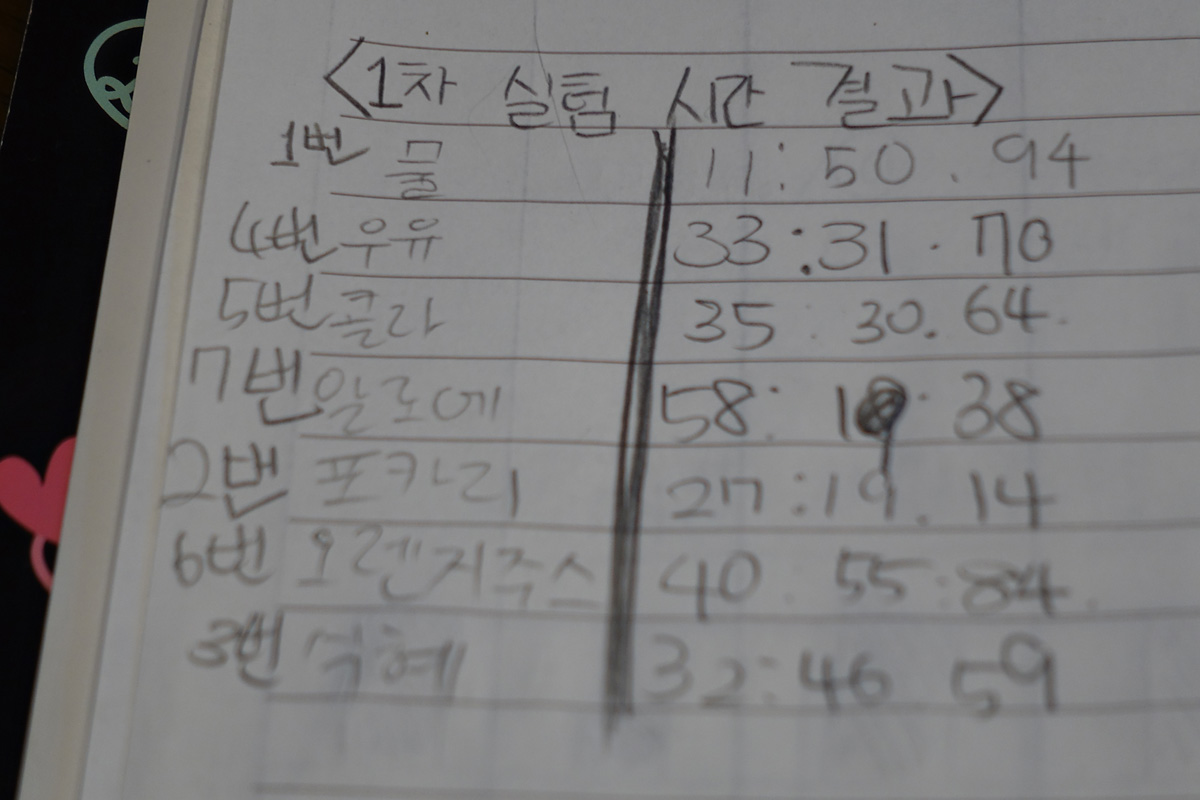 <1차 실험 시간 결과>
1번 물 11:50.94
4번 우유 33:31.70
5번 콜라 35:30.64.
7번 알로에 58: 38
2번 포카리 27:19.14
6번 오렌지주스 40 55:84.
3번 식혜 32:46 59